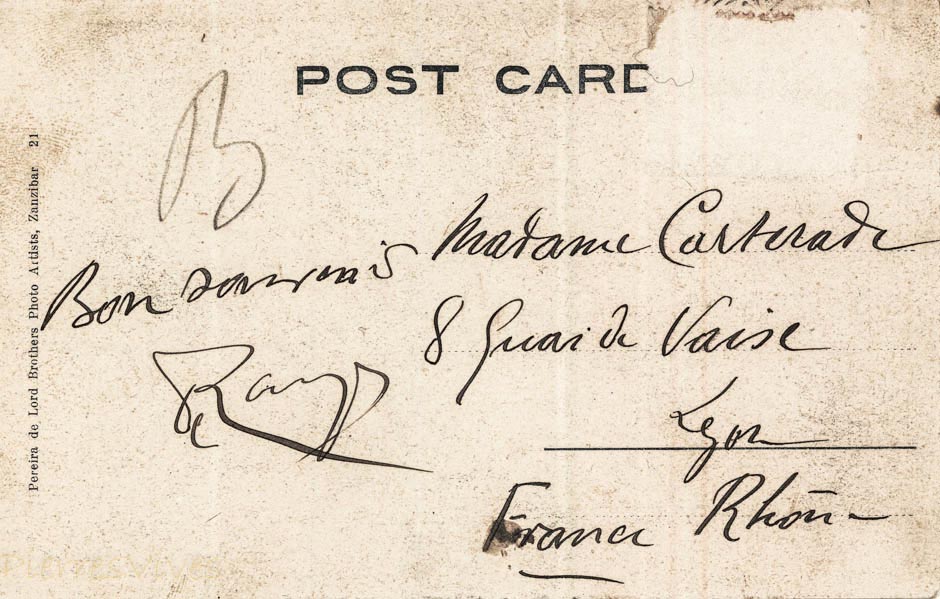 POST CARD
B
Bon souvenir
Madame Carterade
8 Quai de Vaise
Lyon
France Rhône
Pereira de Lord Brothers Photo Artists, Zanzibar 21